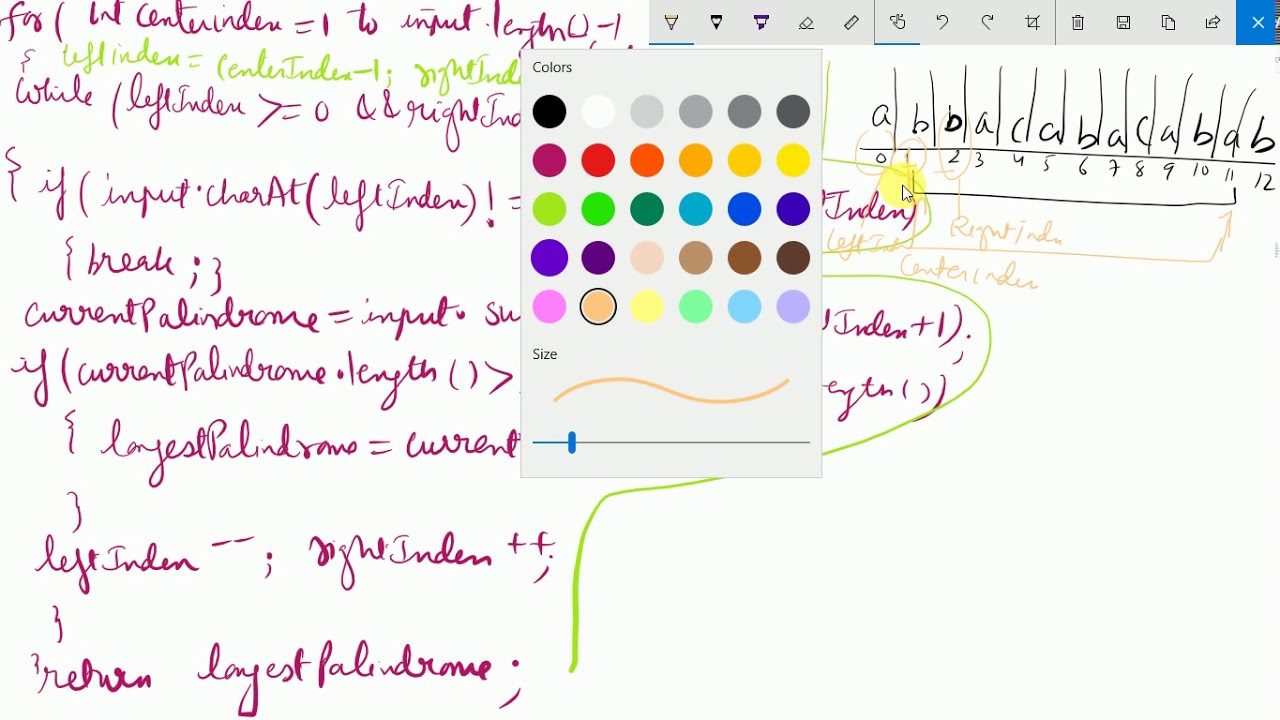 for ( Int Centerindex = 1 to input.length()-1
{ leftindex = CenterIndex-1; rightInde
While (leftIndex >= 0 && rightInd
{ if (input.charAt(leftIndex) ! =
tIndex)
{ break ; }
currentPalindrome = input. su
tIndex+1).;
if (currentPalindrome.length () >
ength())
{ longestPalindrome = current
}
leftIndex -- ; rightIndex ++;
}
}return longestPalindrome ;
Colors
Size
a b b a c a b a c a b a b
0 1 2 3 4 5 6 7 8 9 10 11 12
leftInd
Rightindex
Centerindex